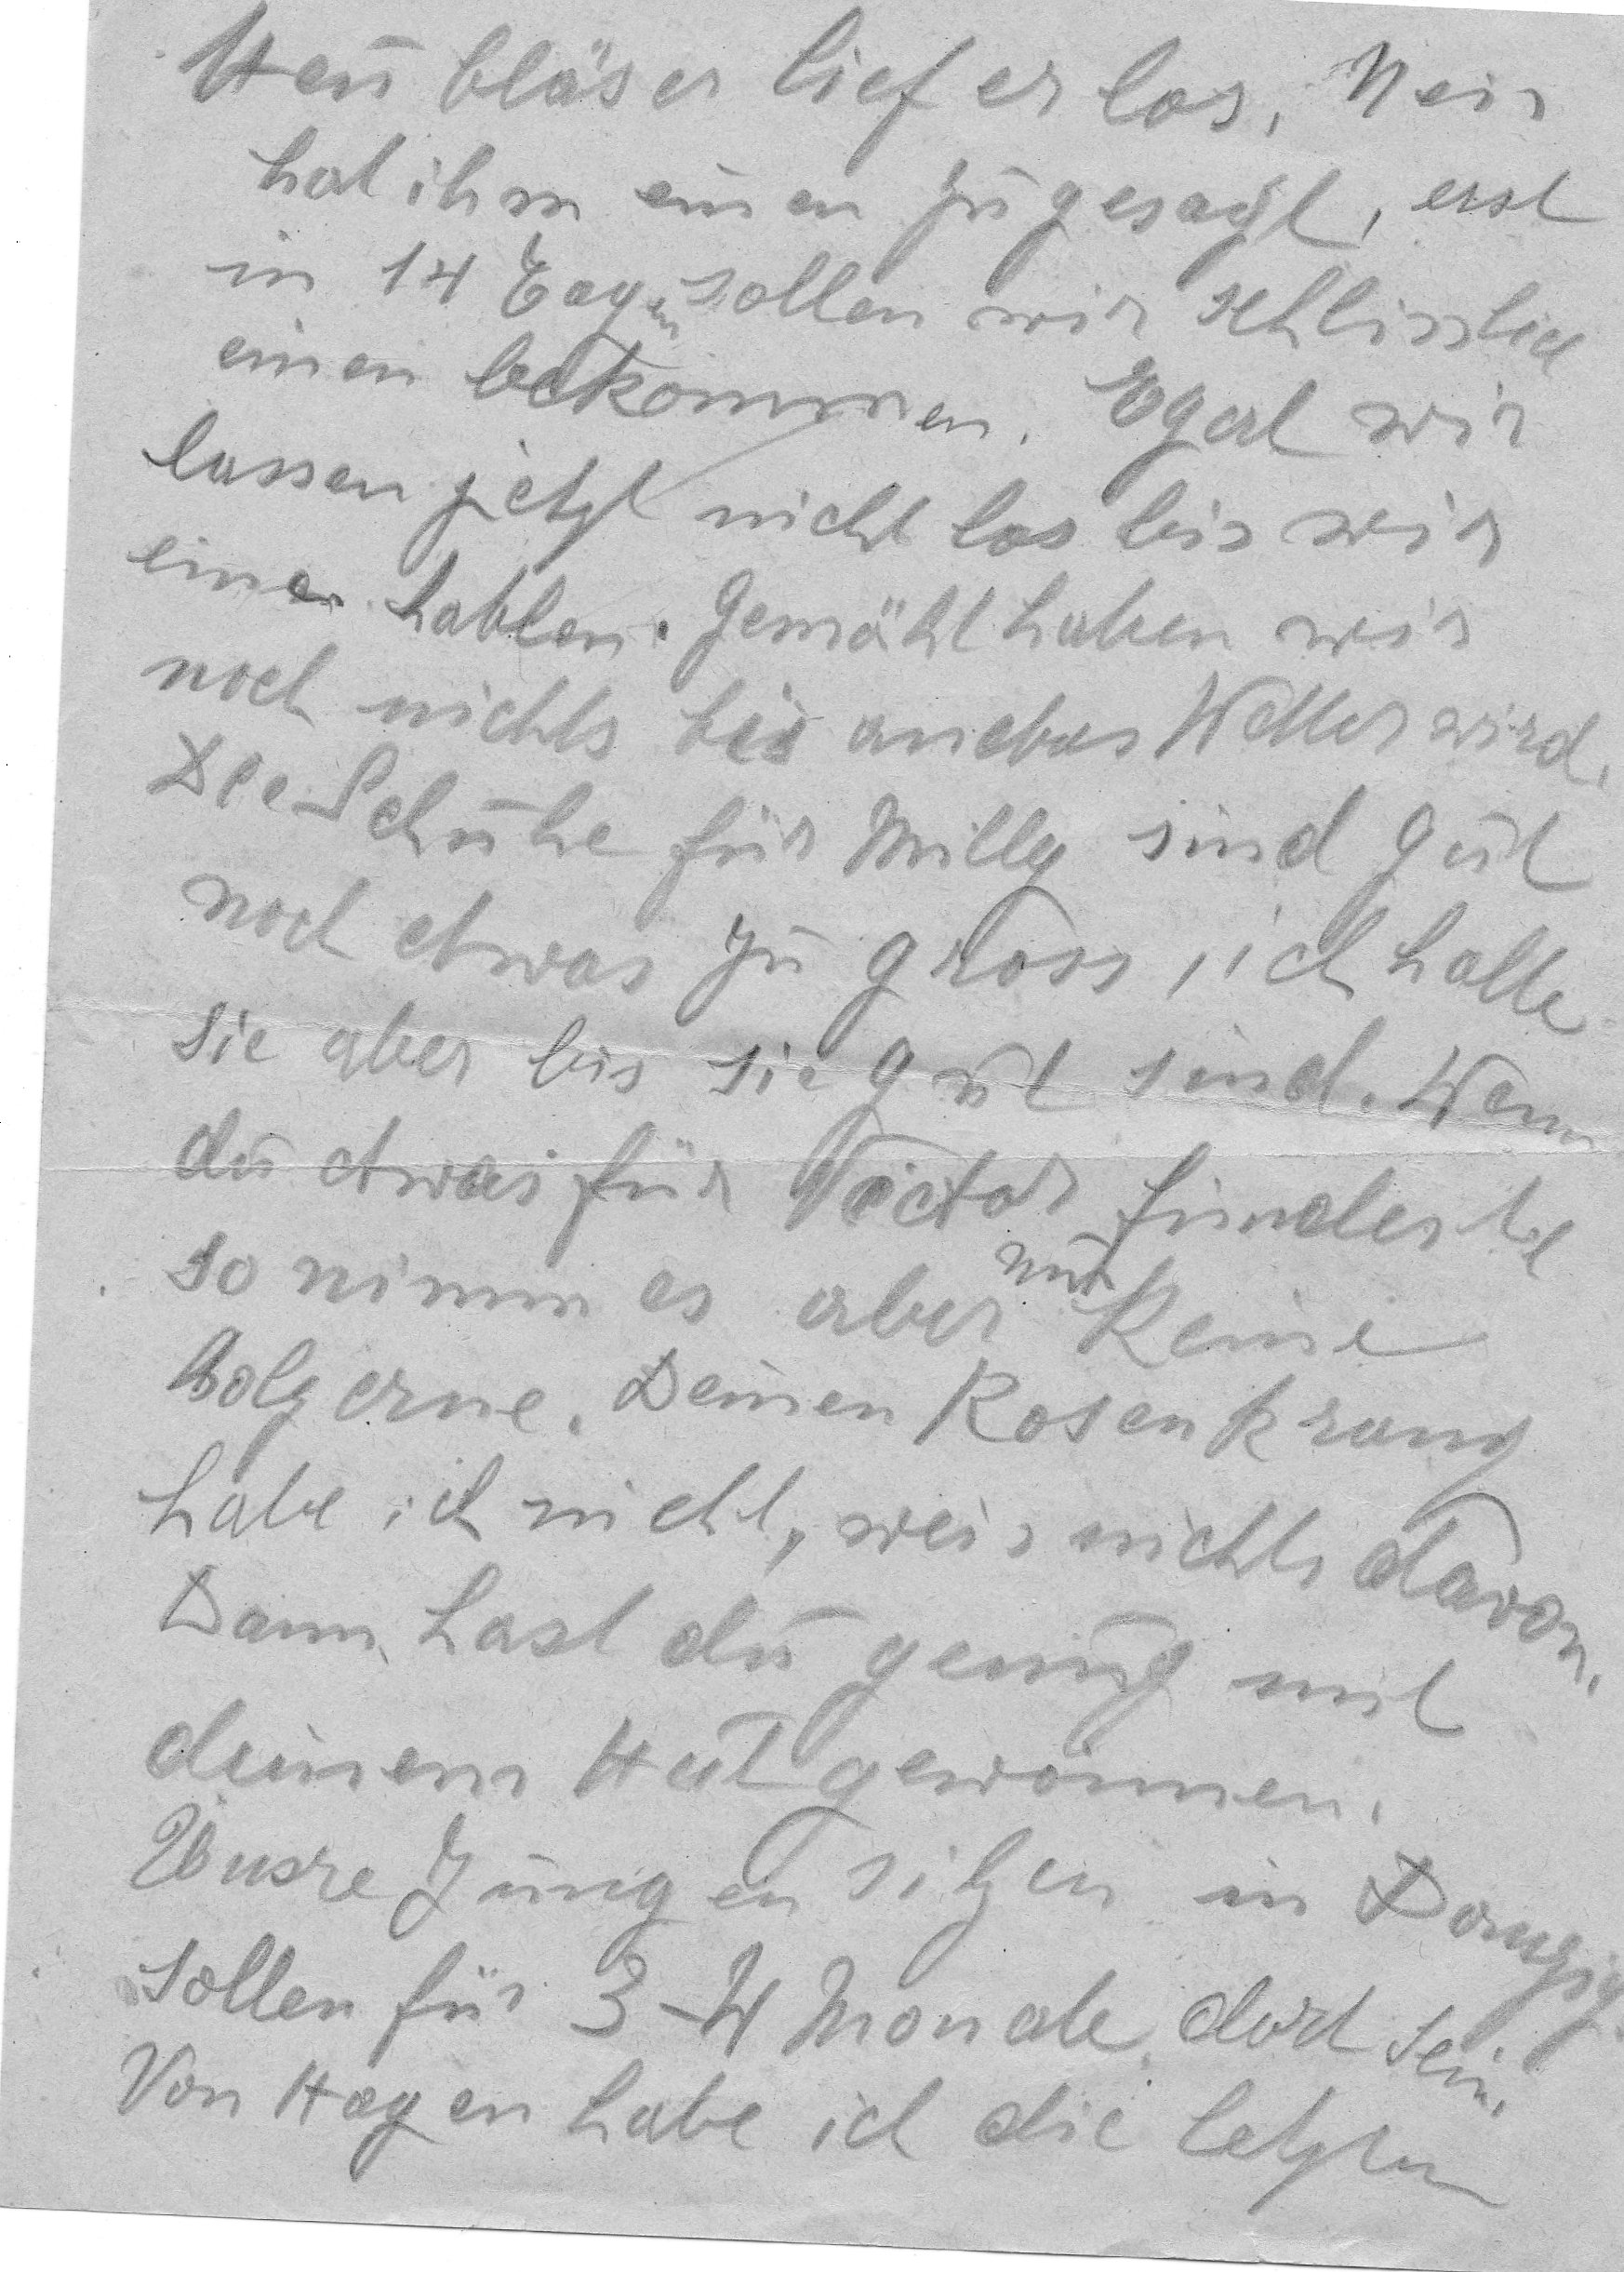 Heu bläser lief er los, Nein
hat ihm einen zugesagt, erst
in 14 Tagen sollen wir schlisslich
einen bekommen. Egal wir
lassen jetzt nicht los bis wir
einen habben. Gemäht haben wir
noch nichts bis anders Wetter wird.
Die Schuhe für Milly sind gut
noch etwas zu gross, ich halte
sie aber bis sie gut sind. Wenn
du etwas für Victor findest
so nimm es aber nur keine
holzerne. Deinen Rosenkranz
habe ich nicht, weis nichts davon.
Dann hast du genug mit
deinem Hut gewonnen.
Unsre Jungen sitzen in Danzig
sollen für 3-4 Monate dort sein.
Von Hagen habe ich die letzten